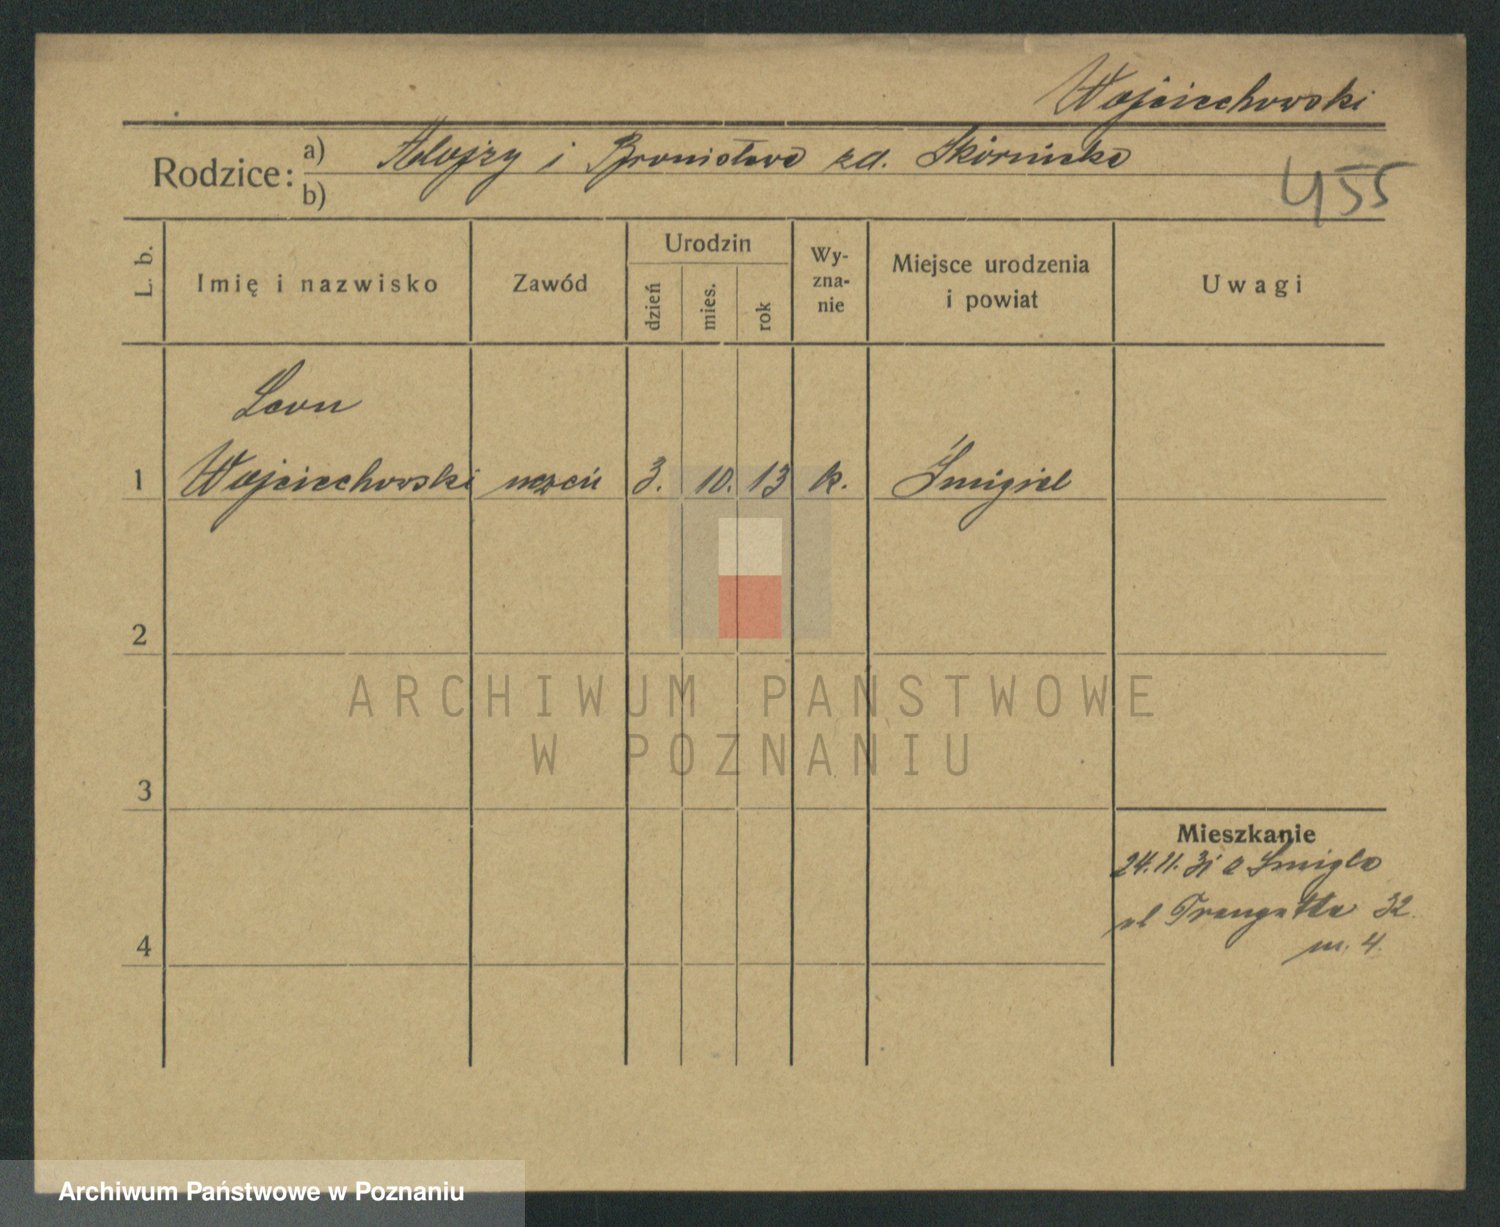 Wojciechowski
Rodzice: a) Alojzy i Bronisława zd. Skórnicka
b)
455
L. b.
Imię i nazwisko
Zawód
Urodzin
dzień
mies.
rok
Wy-
zna-
nie
Miejsce urodzenia
i powiat
Uwagi
Leon
1 Wojciechowski uczeń 3. 10. 13 k. Śmigiel
2
3
4
Mieszkanie
24.11.31 z Śmigla
ul Traugutta 32
m. 4
ARCHIWUM PAŃSTWOWE
W POZNANIU
Archiwum Państwowe w Poznaniu